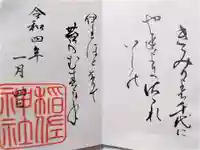 きみか代は千代に
やちよにさゝれ
いしの
いはほとなりて
苔のむすまて
令和四年
一月
稲佐
神社